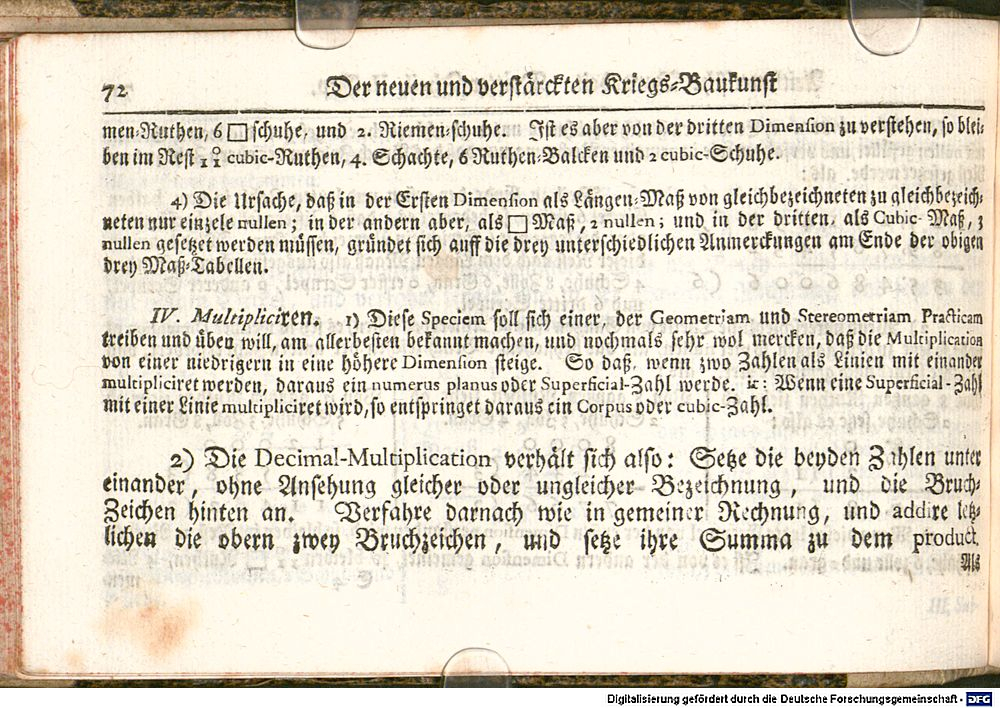 72 Der neuen und verstärckten Kriegs-Baukunst
men-Ruthen, 6 □ schuhe, und 2. Riemen-schuhe. Ist es aber von der dritten Dimension zu verstehen, so blei-
ben im Rest cubic-Ruthen, 4. Schachte, 6 Ruthen-Balcken und 2 cubic-Schuhe.
4) Die Ursache, daß in der Ersten Dimension als Längen-Maß von gleichbezeichneten zu gleichbezeich-
neten nur einzele nullen; in der andern aber, als □ Maß, 2 nullen; und in der dritten, als Cubic-Maß, 3
nullen gesetzet werden müssen, gründet sich auff die drey unterschiedlichen Anmerckungen am Ende der obigen
drey Maß-Tabellen.
IV. Multipliciren. 1) Diese Speciem soll sich einer, der Geometriam und Stereometriam Practicam
treiben und üben will, am allerbesten bekannt machen, und nochmals sehr wol mercken, daß die Multiplication
von einer niedrigern in eine höhere Dimension steige. So daß, wenn zwo Zahlen als Linien mit einander
multipliciret werden, daraus ein numerus planus oder Superficial-Zahl werde. ꝛc: Wenn eine Superficial-Zahl
mit einer Linie multipliciret wird, so entspringet daraus ein Corpus oder cubic-Zahl.
2) Die Decimal-Multiplication verhält sich also: Setze die beyden Zahlen unter
einander, ohne Ansehung gleicher oder ungleicher Bezeichnung, und die Bruch-
Zeichen hinten an. Verfahre darnach wie in gemeiner Rechnung, und addire letz-
lichen die obern zwey Bruchzeichen, und setze ihre Summa zu dem product.
Als
Digitalisierung gefördert durch die Deutsche Forschungsgemeinschaft - DFG